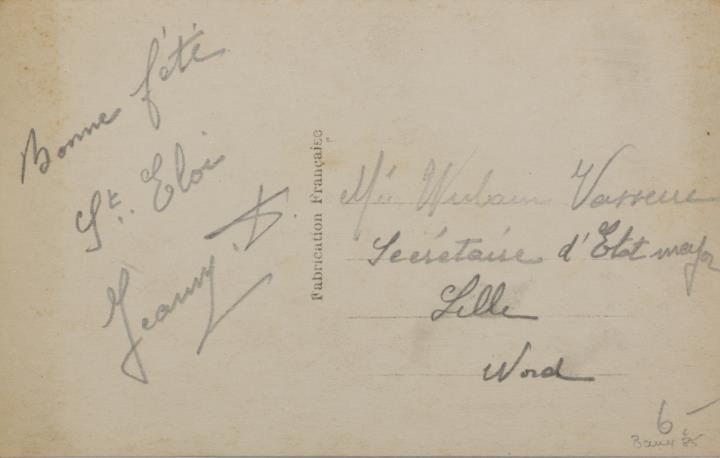 Bonne fête
St. Eloi
Jeanny. D.
Fabrication Française
Vasseur
Secrétaire d'Etat major
Lille
Nord
6-